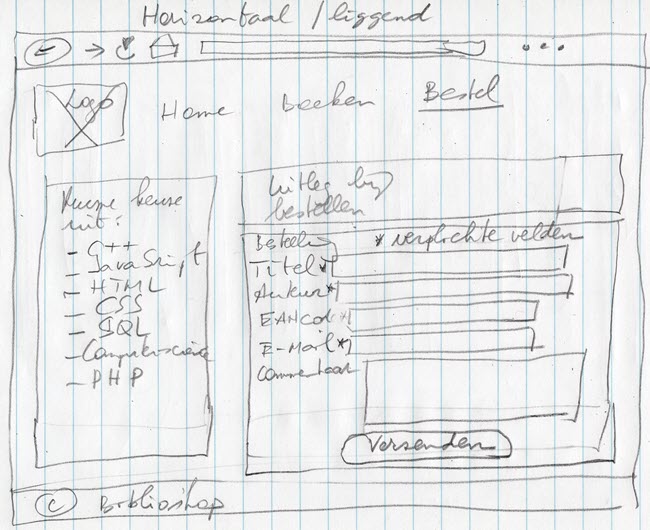 Horizontaal / liggend
Logo
Home
boeken
Bestel
Ruime keuze
uit:
- C++
- JavaScript
- HTML
- CSS
- SQL
- Computerscience
- PHP
Uitleg bij
bestellen
Bestellen
* verplichte velden
Titel *
Auteur *
EANcode *
E-Mail *
Commentaar
Versenden
C Biblioshop